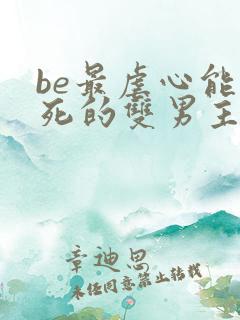 be最虐心能
死的雙男主
章迪思
未任同意禁止转载